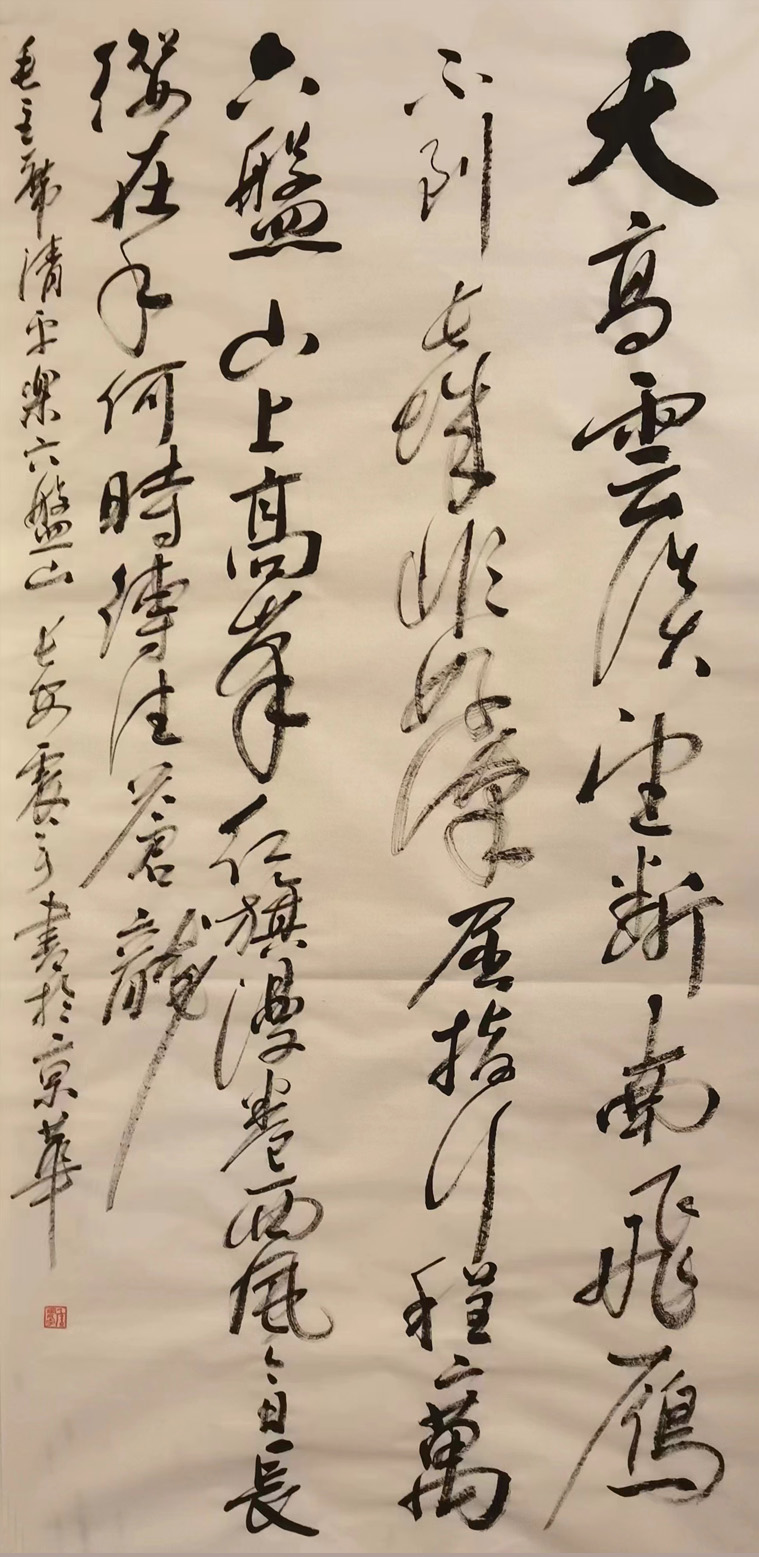 天高雲淡望斷南飛雁
不到长城非好漢屈指行程二萬
六盤山上高峯紅旗漫卷西風今日長
纓在手何時縛住蒼龍
毛主席清平樂六盤山 长安震書於京華